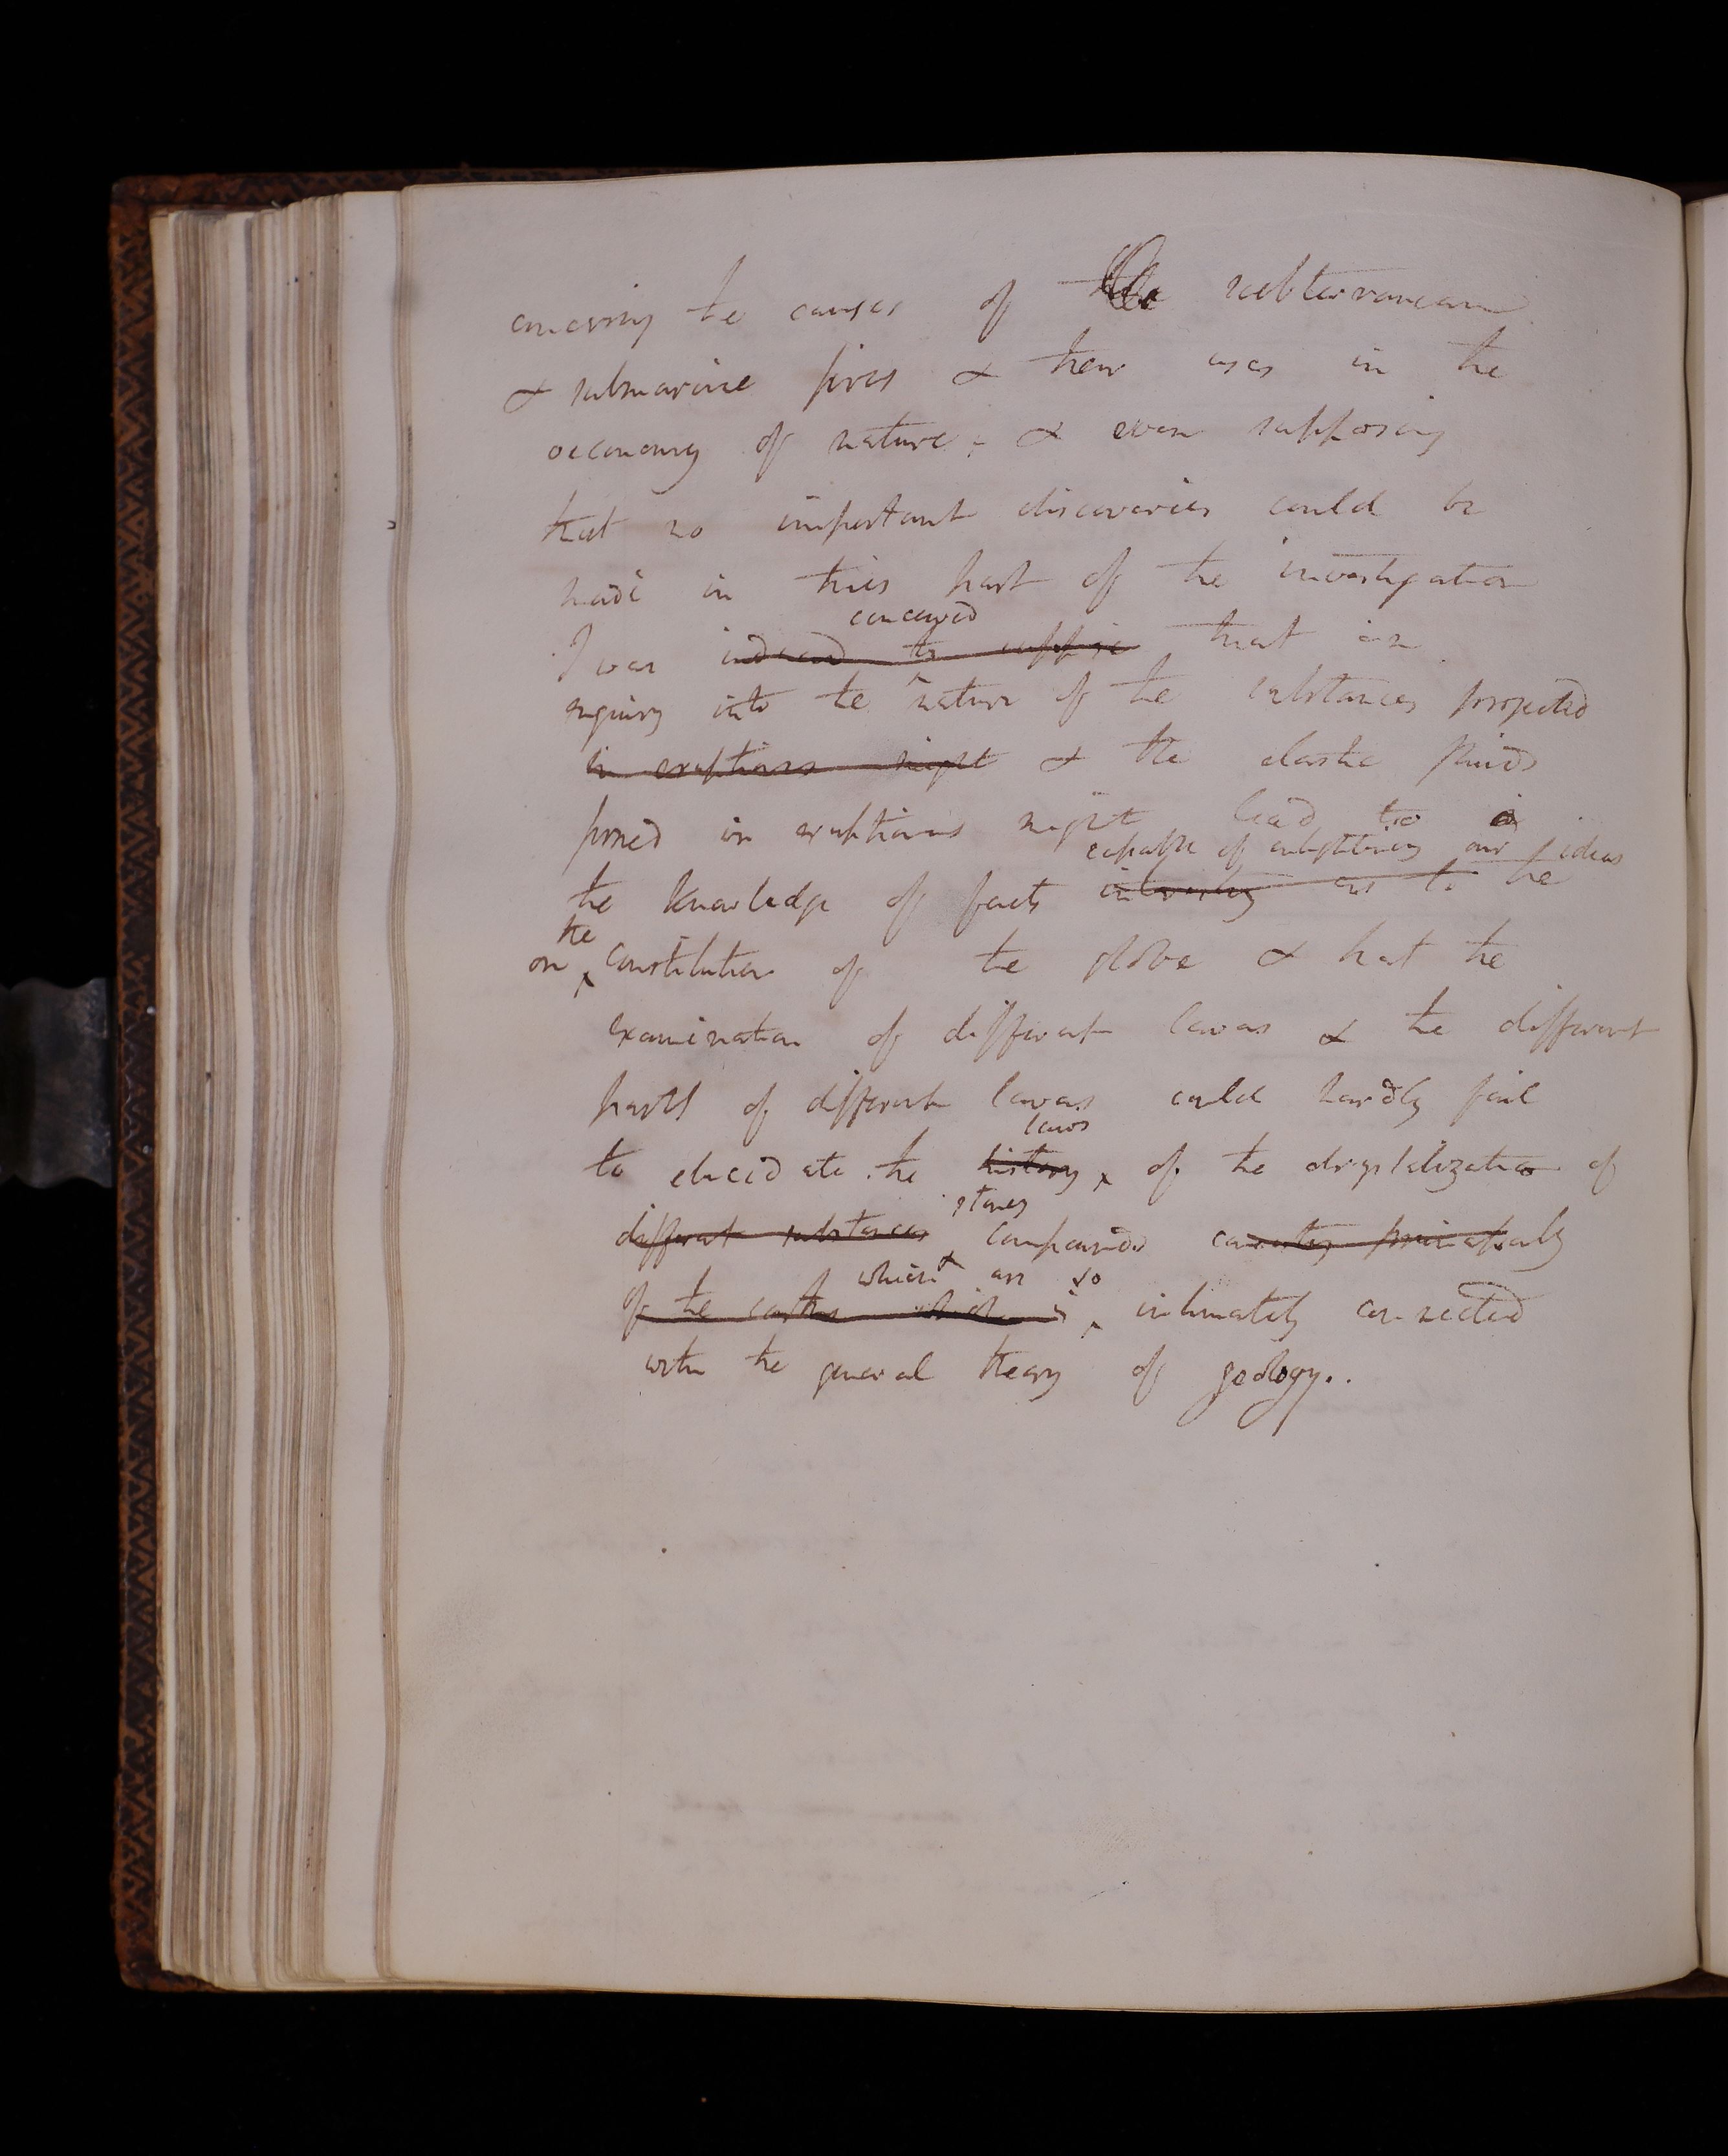 concerning the causes of the subterranean
& submarine fires & their uses in the
oeconomy of nature; & even supposing
that no important discoveries could be
made in this part of the investigation
conceived
I was induced to suppose that an
enquiry into the nature of the substances projected
in eruptions might & the elastic fluids
formed in eruptions might lead to a
capable of enlightening our ideas
the knowledge of facts interesting as to the
the
on constitution of the globe & that the
examination of different lavas & the different
parts of different lavas could hardly fail
laws
to elucidate the history of the chrystalization of
stones
different substances compounds consisting principally
which are so
of the earths which is intimately connected
with the general theory of geology..